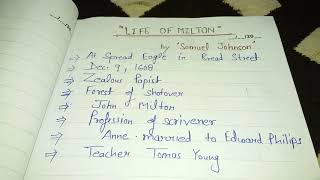 "LIFE OF MILTON"
by "Samuel Johnson"
⇒ At Spread Eagle in Bread Street
⇒ Dec. 9, 1608
⇒ Zealous Papist
⇒ Forest of shotover
⇒ John Milton
⇒ Profession of scrivener
⇒ Anne. married to Edward Philips
⇒ Teacher Tomas Young